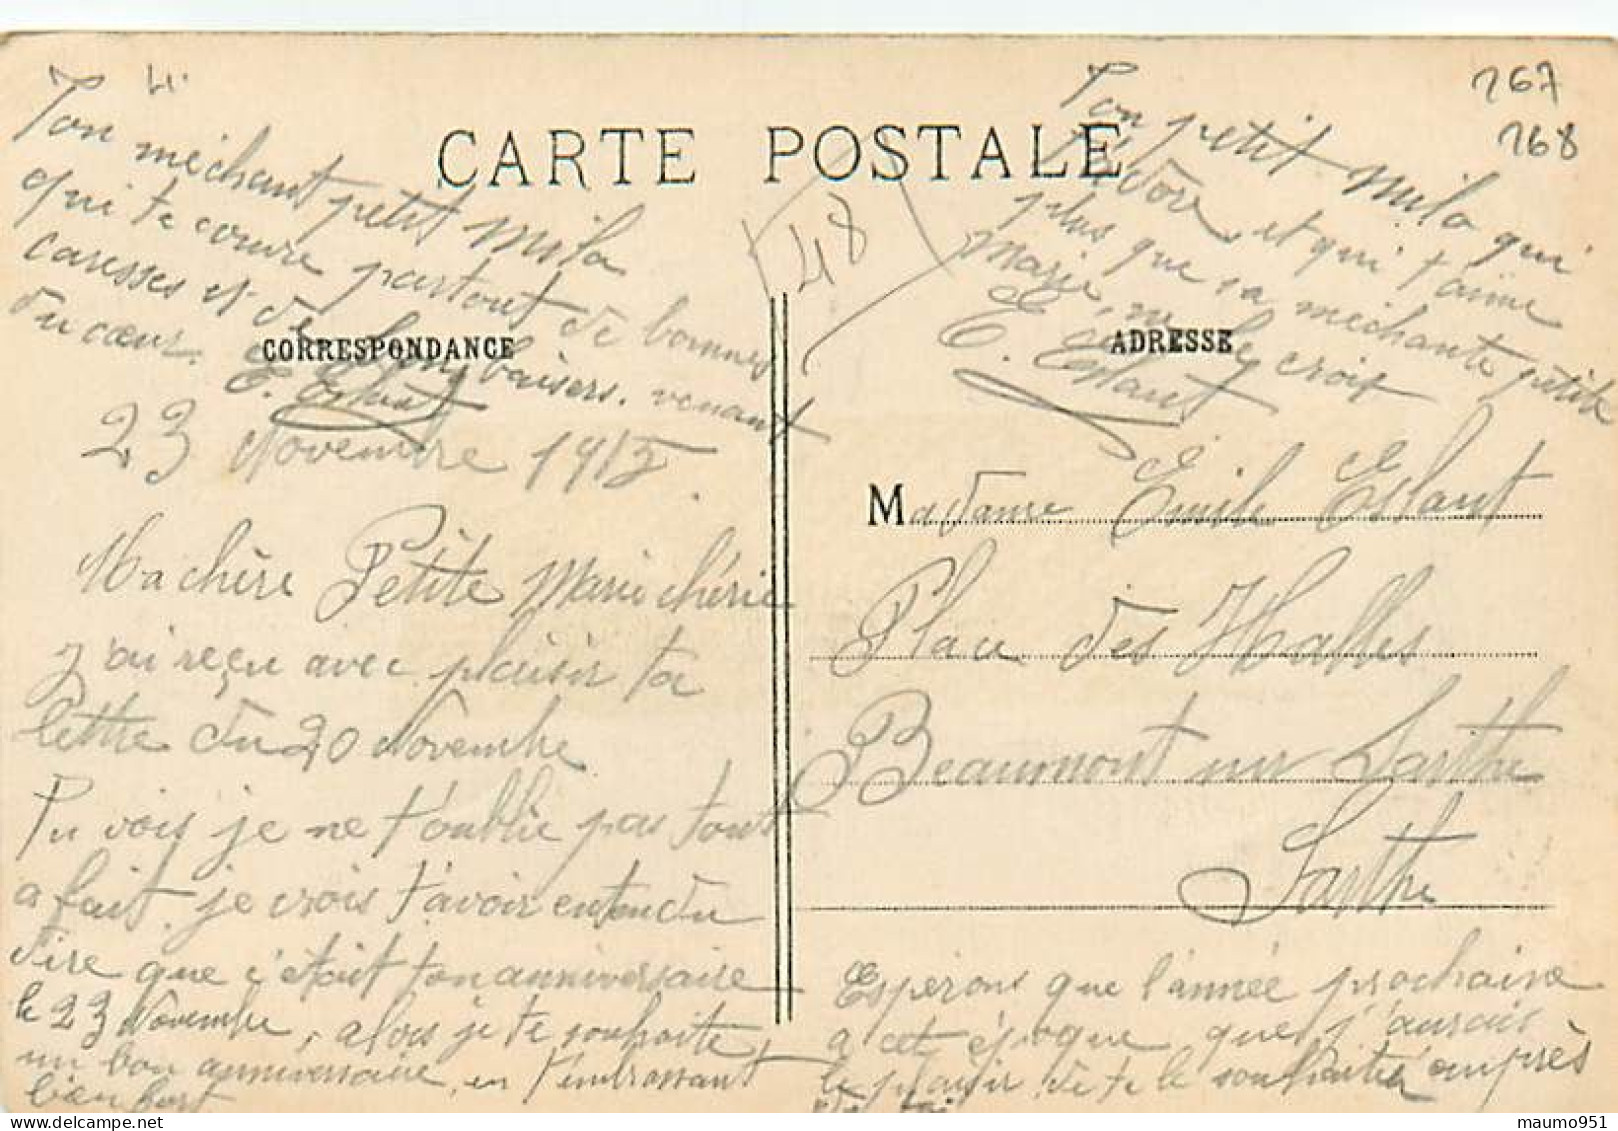 4.
Ton méchant petit mila
qui te couvre partout de bonnes
caresses et de longs baisers. venant
du cœur. E. Eslant
CARTE POSTALE
48
267
268
Ton petit mila qui
t'adore, et qui t'aime
plus que sa méchante petite
Marie, ne le croix
E. Eslant
CORRESPONDANCE
ADRESSE
23 Novembre 1915.
Ma chère Petite Marie chérie
j'ai reçu avec plaisir ta
lettre du 20 Novembre
Tu vois je ne t'oublie pas tout
a fait. je crois t'avoir entendu
dire que c'était ton anniversaire
le 23 Novembre, alors je te souhaite
un bon anniversaire, en t'embrassant
bien fort
Madame Emile Eslant
Place des Halles
Beaumont sur Sarthe
Sarthe
Espérons que l'année prochaine
a cet époque que j'aurais
le plaisir de te le souhaiter auprès
de toi
maumo951